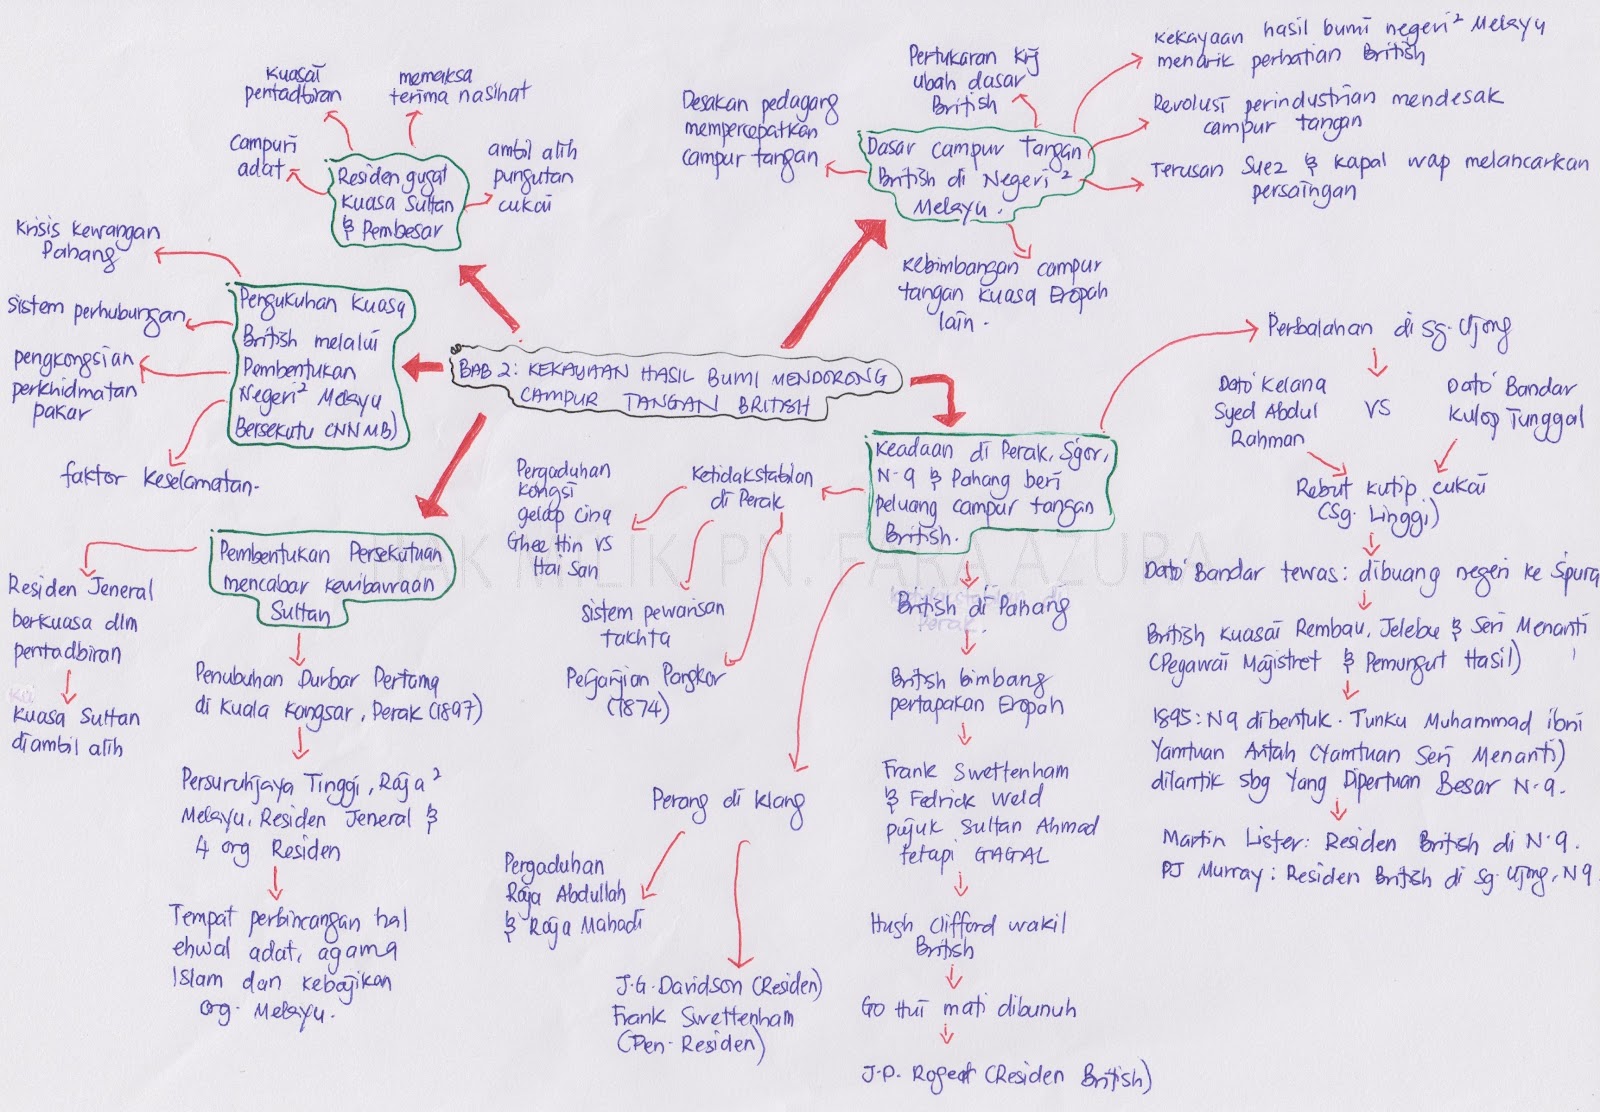 BAB 2: KEKAYAAN HASIL BUMI MENDORONG
CAMPUR TANGAN BRITISH
Dasar campur tangan
British di Negeri²
Melayu.
Desakan pedagang
mempercepatkan
campur tangan
Pertukaran krj
ubah dasar
British
Kekayaan hasil bumi negeri² Melayu
menarik perhatian British
Revolusi perindustrian mendesak
campur tangan
Terusan Suez & kapal wap melancarkan
persaingan
Kebimbangan campur
tangan kuasa Eropah
lain.
Keadaan di Perak, S'gor,
N.9 & Pahang beri
peluang campur tangan
British.
Perbalahan di Sg. Ujong
Dato' Kelana
Syed Abdul
Rahman
VS
Dato' Bandar
Kulop Tunggal
Rebut kutip cukai
(Sg. Linggi)
Dato' Bandar tewas: dibuang negeri ke S'pura
British kuasai Rembau, Jelebu & Seri Menanti
(Pegawai Majistret & Pemungut Hasil)
1895: N9 dibentuk. Tunku Muhammad ibni
Yamtuan Antah (Yamtuan Seri Menanti)
dilantik sbg Yang Dipertuan Besar N.9.
Martin Lister: Residen British di N.9.
PJ Murray: Residen British di Sg. Ujong, N9
British di Pahang
British bimbang
pertapakan Eropah
Frank Swettenham
& Fedrick Weld
pujuk Sultan Ahmad
tetapi GAGAL
Hugh Clifford wakil
British
Go Hui mati dibunuh
J.P. Rodger (Residen British)
Ketidakstabilan
di Perak
Pergaduhan
kongsi
gelap Cina
Ghee Hin vs
Hai San
sistem pewarisan
takhta
Perjanjian Pangkor
(1874)
Perang di Klang
Pergaduhan
Raja Abdullah
& Raja Mahadi
J.G. Davidson (Residen)
Frank Swettenham
(Pen. Residen)
Pembentukan Persekutuan
mencabar kewibawaan
Sultan
Residen Jeneral
berkuasa dlm
pentadbiran
kuasa Sultan
diambil alih
Penubuhan Durbar Pertama
di Kuala Kangsar, Perak (1897)
Persuruhjaya Tinggi, Raja²
Melayu, Residen Jeneral &
4 org Residen
Tempat perbincangan hal
ehwal adat, agama
Islam dan kebajikan
org. Melayu.
Pengukuhan Kuasa
British melalui
Pembentukan
Negeri² Melayu
Bersekutu (NNMB)
Krisis kewangan
Pahang
sistem perhubungan
pengkongsian
perkhidmatan
pakar
faktor keselamatan.
Residen gugat
kuasa Sultan
& Pembesar
campuri
adat
kuasai
pentadbiran
memaksa
terima nasihat
ambil alih
pungutan
cukai
HAK MILIK PN. FARA AZURA